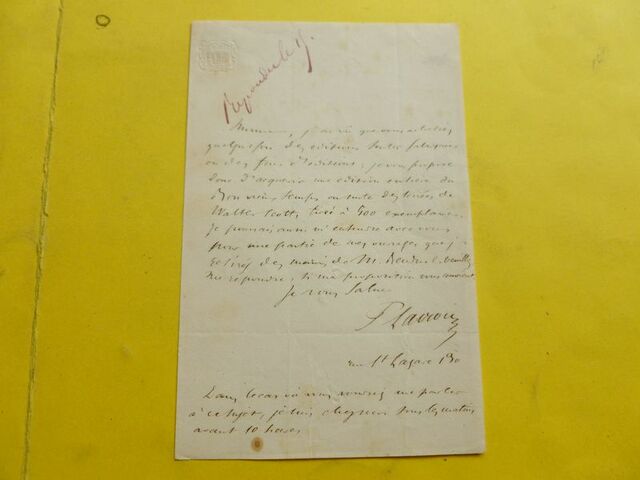 Repondu le 15.
Monsieur, j'ai vu que vous achetiez
quelquefois des editions toutes fabriquées
ou des fins d'éditions; je vous propose
donc d'acquerir une édition entière du
Bon vieux temps ou suite des
Walter Scott, tiré à 500 exemplaires.
Je pourrais aussi m'entendre avec vous
pour une partie de mes ouvrages que j'ai
retirés des mains de M. veuillez
me répondre, si ma proposition vous convient.
Je vous salue
rue St Lazare 130
Dans le cas où vous voudriez me parler
à ce sujet, je suis chez moi tous les matins
avant 10 heures